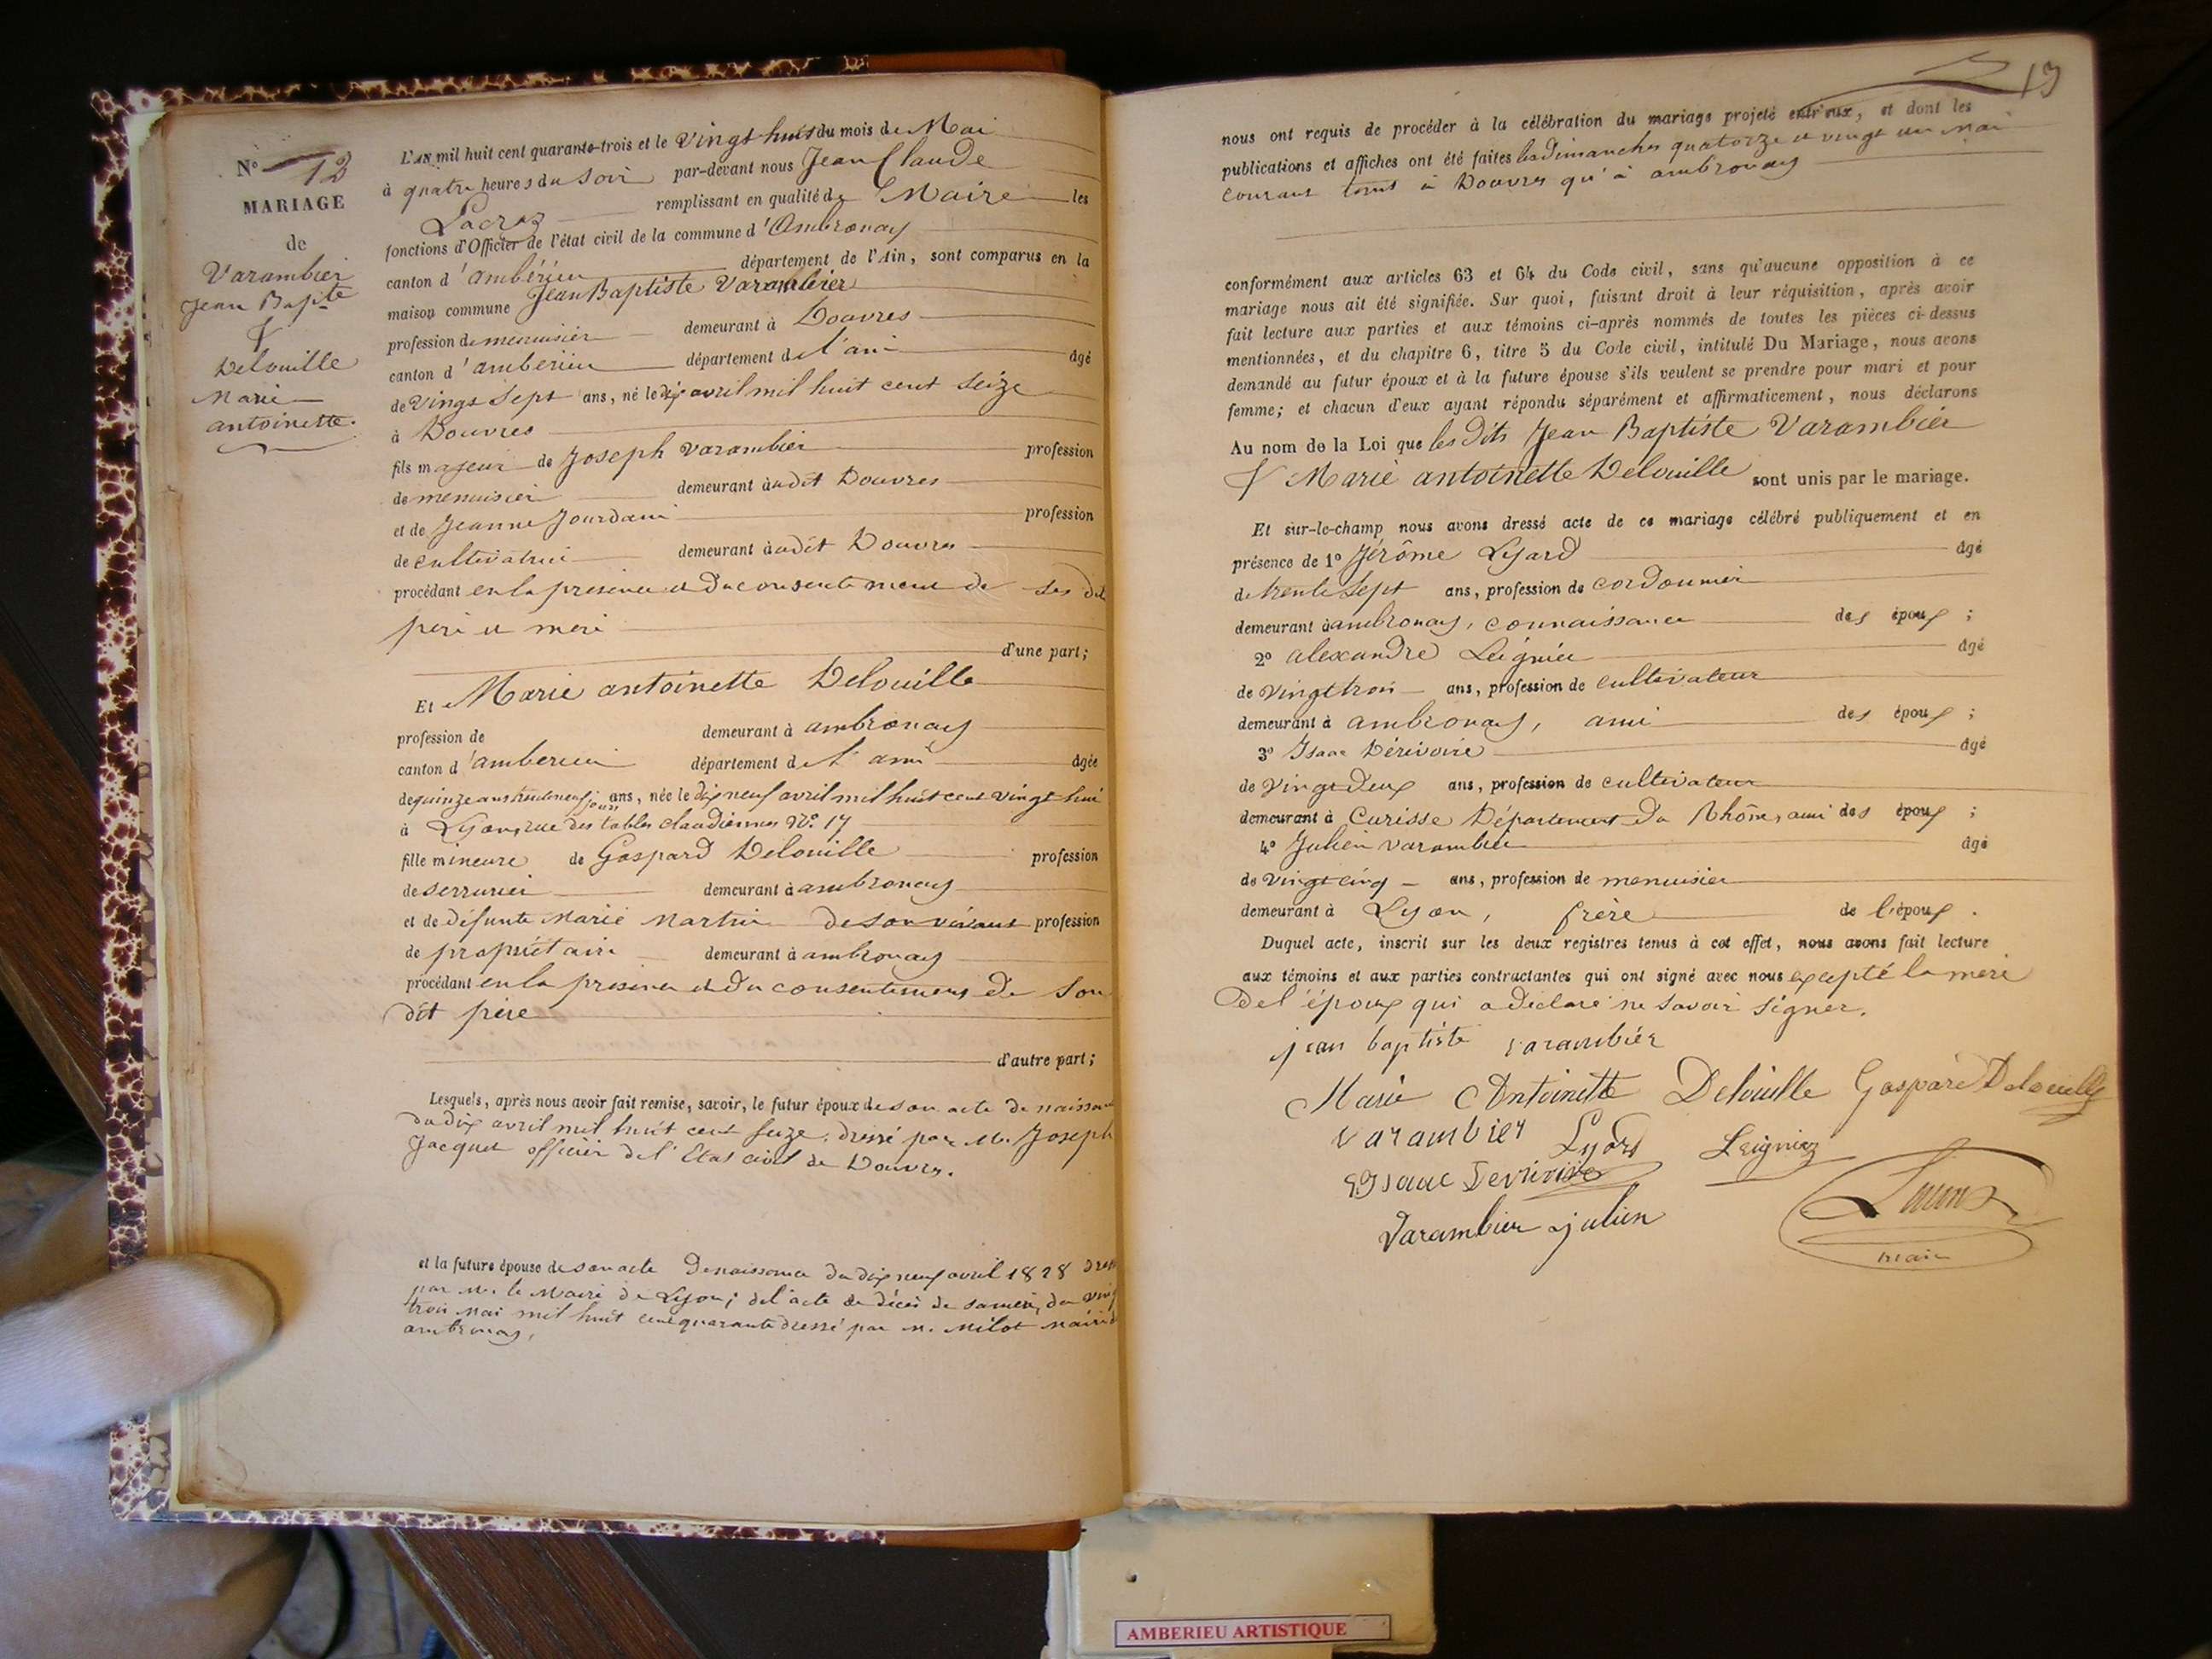 N° 12
MARIAGE
de
Varambier
Jean Bapte
&
Delouille
Marie
antoinette.
L'AN mil huit cent quarante-trois et le Vingt huit du mois de Mai
à quatre heures du Soir par-devant nous Jean Claude
Lacroz remplissant en qualité de Maire les
fonctions d'Officier de l'état civil de la commune d'Ambronay
canton d'ambérieu département de l'Ain, sont comparus en la
maison commune Jean Baptiste Varambier
profession de menuisier demeurant à Douvres
canton d'ambérieu département de l'ain âgé
de Vingt Sept ans, né le dix avril mil huit cent Seize
à Douvres
fils majeur de Joseph Varambier profession
de menuisier demeurant àudit Douvres
et de Jeanne Jourdain profession
de cultivatrice demeurant àudit Douvres
procédant en la présence et du consentement de ses dit
père et mère
d'une part;
Et Marie antoinette Delouille
profession de demeurant à ambronay
canton d'amberieu département de l'ain âgée
de quinze ans trente neuf jours ans, née le dix neuf avril mil huit cent vingt huit
à Lyon, rue des tables claudiennes N°. 17
fille mineure de Gaspard Delouille profession
de serrurier demeurant à ambronay
et de défunte Marie Martin de son vivant profession
de propriétaire demeurant à ambronay
procédant en la présence et du consentement de Son
dit père
d'autre part;
Lesquels, après nous avoir fait remise, savoir, le futur époux de son acte de naissance
du dix avril mil huit cent seize, dressé par M. Joseph
Jacquet officier de l'Etat civil de Douvres.
et la future épouse de son acte De naissance du dix neuf avril 1828 dressé
par M. le Maire de Lyon; de l'acte de décès de sa mère, du vingt
trois Mai mil huit cent quarante dressé par M. Milot Maire d
ambronay,
13
nous ont requis de procéder à la célébration du mariage projeté entr'eux, et dont les
publications et affiches ont été faites les Dimanches quatorze et vingt un Mai
courant tant à Douvres qu'à ambronay
conformément aux articles 63 et 64 du Code civil, sans qu'aucune opposition à ce
mariage nous ait été signifiée. Sur quoi, faisant droit à leur réquisition, après avoir
fait lecture aux parties et aux témoins ci-après nommés de toutes les pièces ci-dessus
mentionnées, et du chapitre 6, titre 5 du Code civil, intitulé Du Mariage, nous avons
demandé au futur époux et à la future épouse s'ils veulent se prendre pour mari et pour
femme; et chacun d'eux ayant répondu séparément et affirmativement, nous déclarons
Au nom de la Loi que les dits Jean Baptiste Varambier
& Marie antoinette Delouille sont unis par le mariage.
Et sur-le-champ nous avons dressé acte de ce mariage célébré publiquement et en
présence de 1° Jérôme Lyard âgé
de trente Sept ans, profession de cordonnier
demeurant à ambronay, connaissance des époux ;
2° alexandre Leignier âgé
de Vingt trois ans, profession de cultivateur
demeurant à ambronay, ami des époux ;
3° Isaac Dérivoire âgé
de Vingt Deux ans, profession de cultivateur
demeurant à Curisse Département du Rhône, ami des époux ;
4° Julien Varambier âgé
de Vingt cinq ans, profession de menuisier
demeurant à Lyon, frère de l'époux .
Duquel acte, inscrit sur les deux registres tenus à cet effet, nous avons fait lecture
aux témoins et aux parties contractantes qui ont signé avec nous excepté la mère
De l'époux qui a déclaré ne savoir signer.
jean baptiste varambiér
Marie Antoinette Delouille Gaspard Delouille
varambier Lyard Leignier
Isaac Derivoire
Varambier julien
maire
AMBERIEU ARTISTIQUE